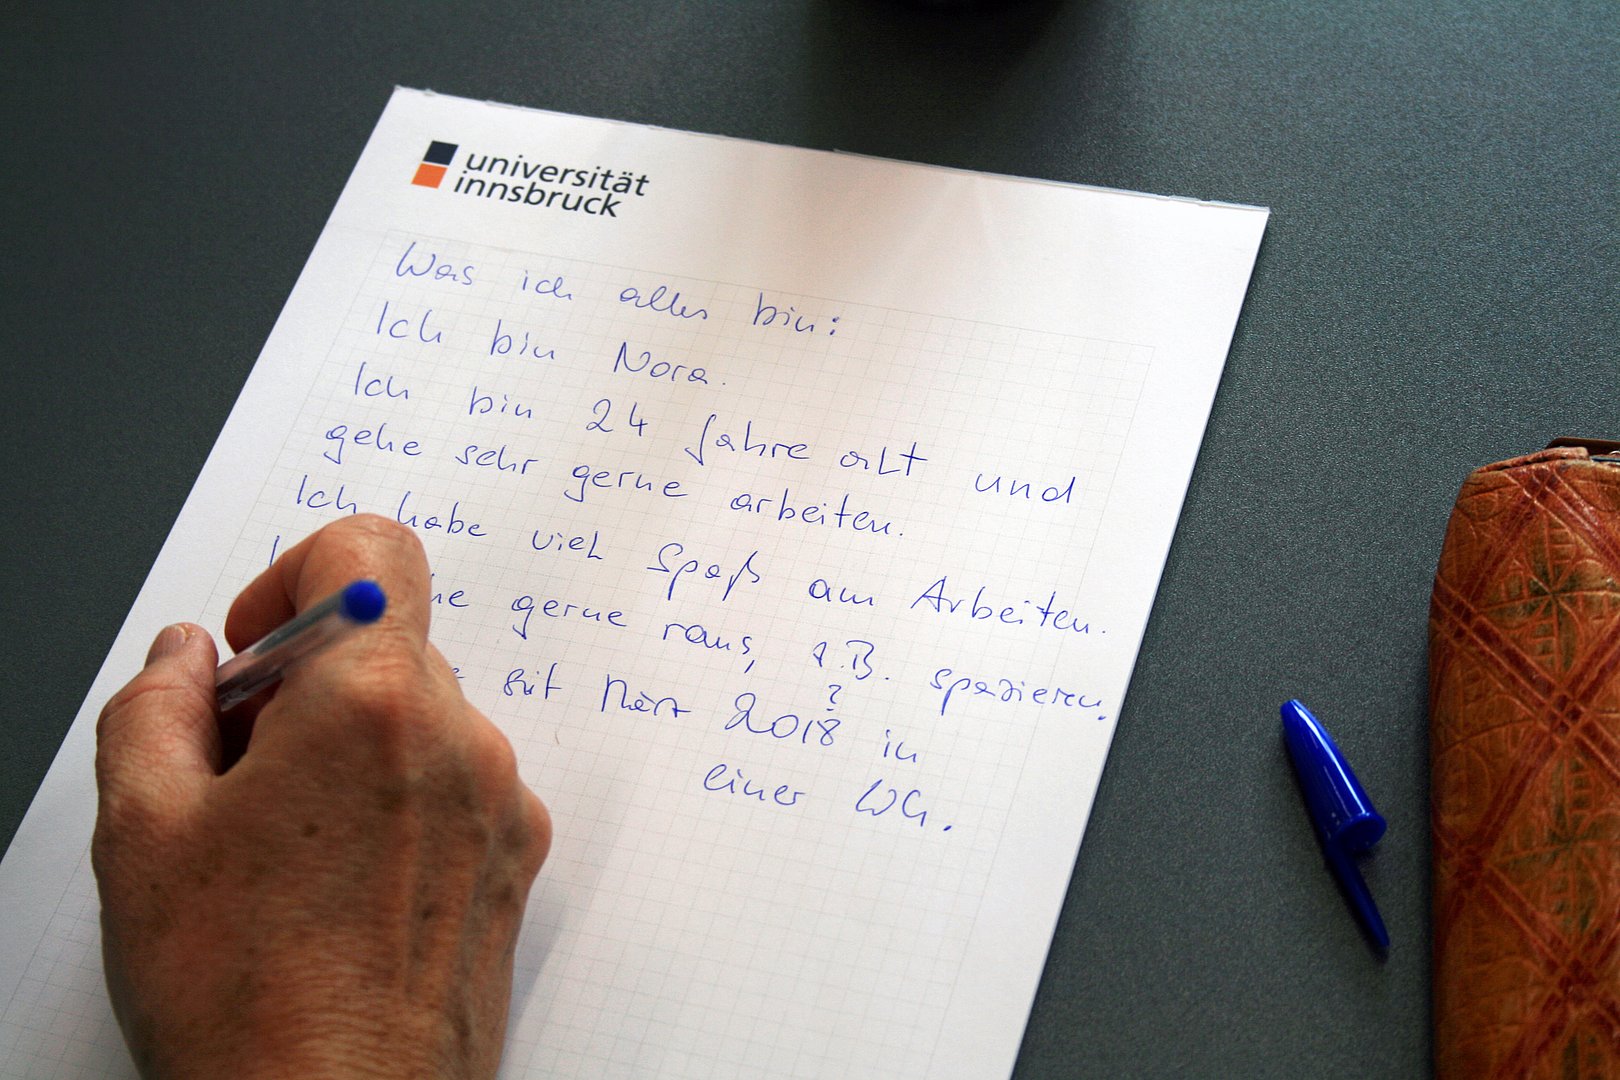 universität
innsbruck
Was ich alles bin:
Ich bin Nora.
Ich bin 24 Jahre alt und
gehe sehr gerne arbeiten.
Ich habe viel Spaß am Arbeiten.
gerne raus, z.B. spazieren.
seit März 2018 ? in
einer WG.